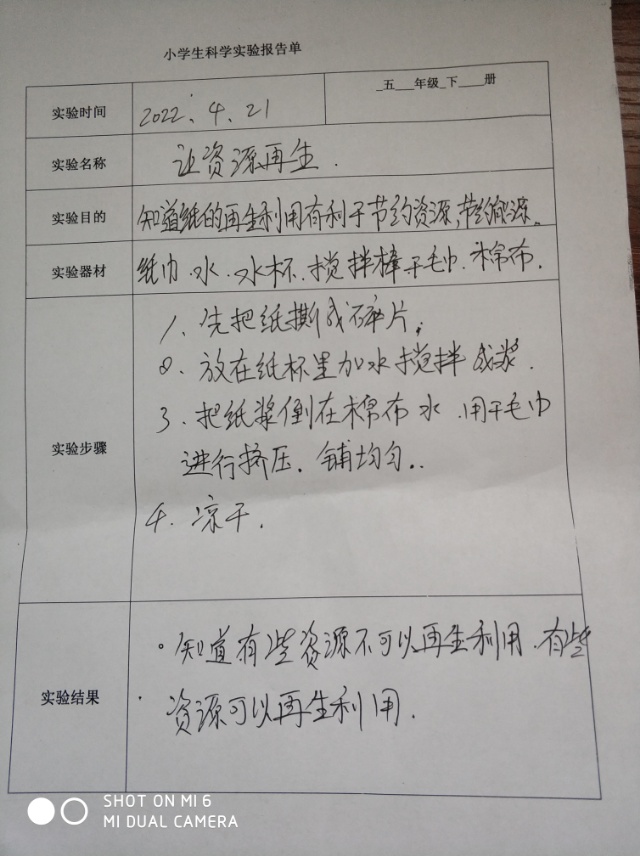 小学生科学实验报告单
实验时间 2022.4.21 五 年级 下 册
实验名称 让资源再生.
实验目的 知道纸的再生利用有利于节约资源,节约能源。
实验器材 纸巾、水、水杯、搅拌棒干毛巾、棉布.
实验步骤
1、先把纸撕成碎片;
2、放在纸杯里加水搅拌成浆.
3、把纸浆倒在棉布水.用干毛巾
进行挤压.铺均匀..
4.凉干.
实验结果
。知道有些资源不可以再生利用.有些
资源可以再生利用.
SHOT ON MI 6
MI DUAL CAMERA